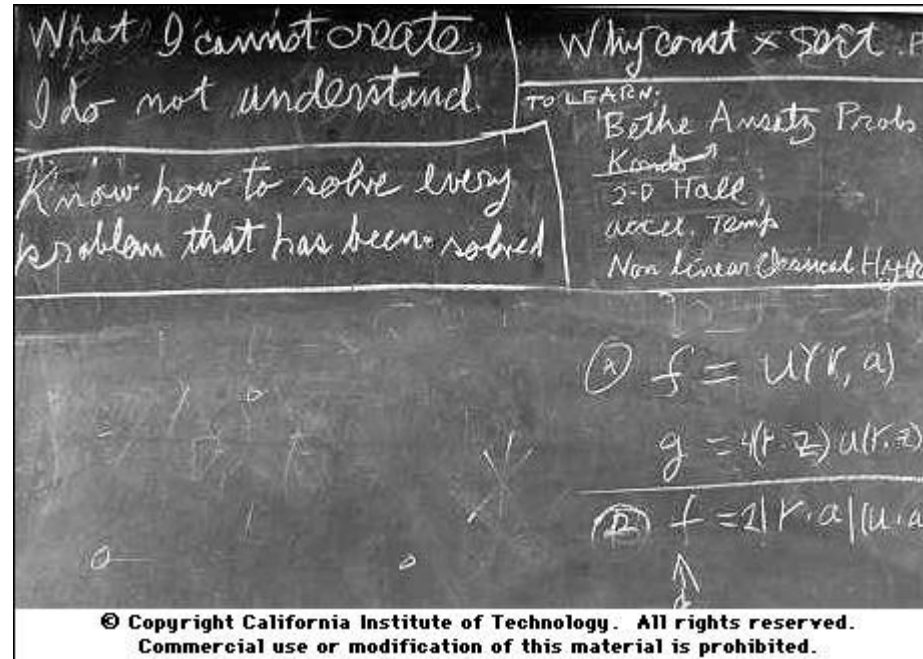 What I cannot create,
I do not understand.
Know how to solve every
problem that has been solved
Why const × sort .
TO LEARN:
Bethe Ansatz Probs
Kondo
2-D Hall
accel. Temp
Non linear Classical Hydro
Ⓐ f = u(r, a)
g = 4(r·z) u(r, z)
f = 2|r·a|(u·a
© Copyright California Institute of Technology. All rights reserved.
Commercial use or modification of this material is prohibited.